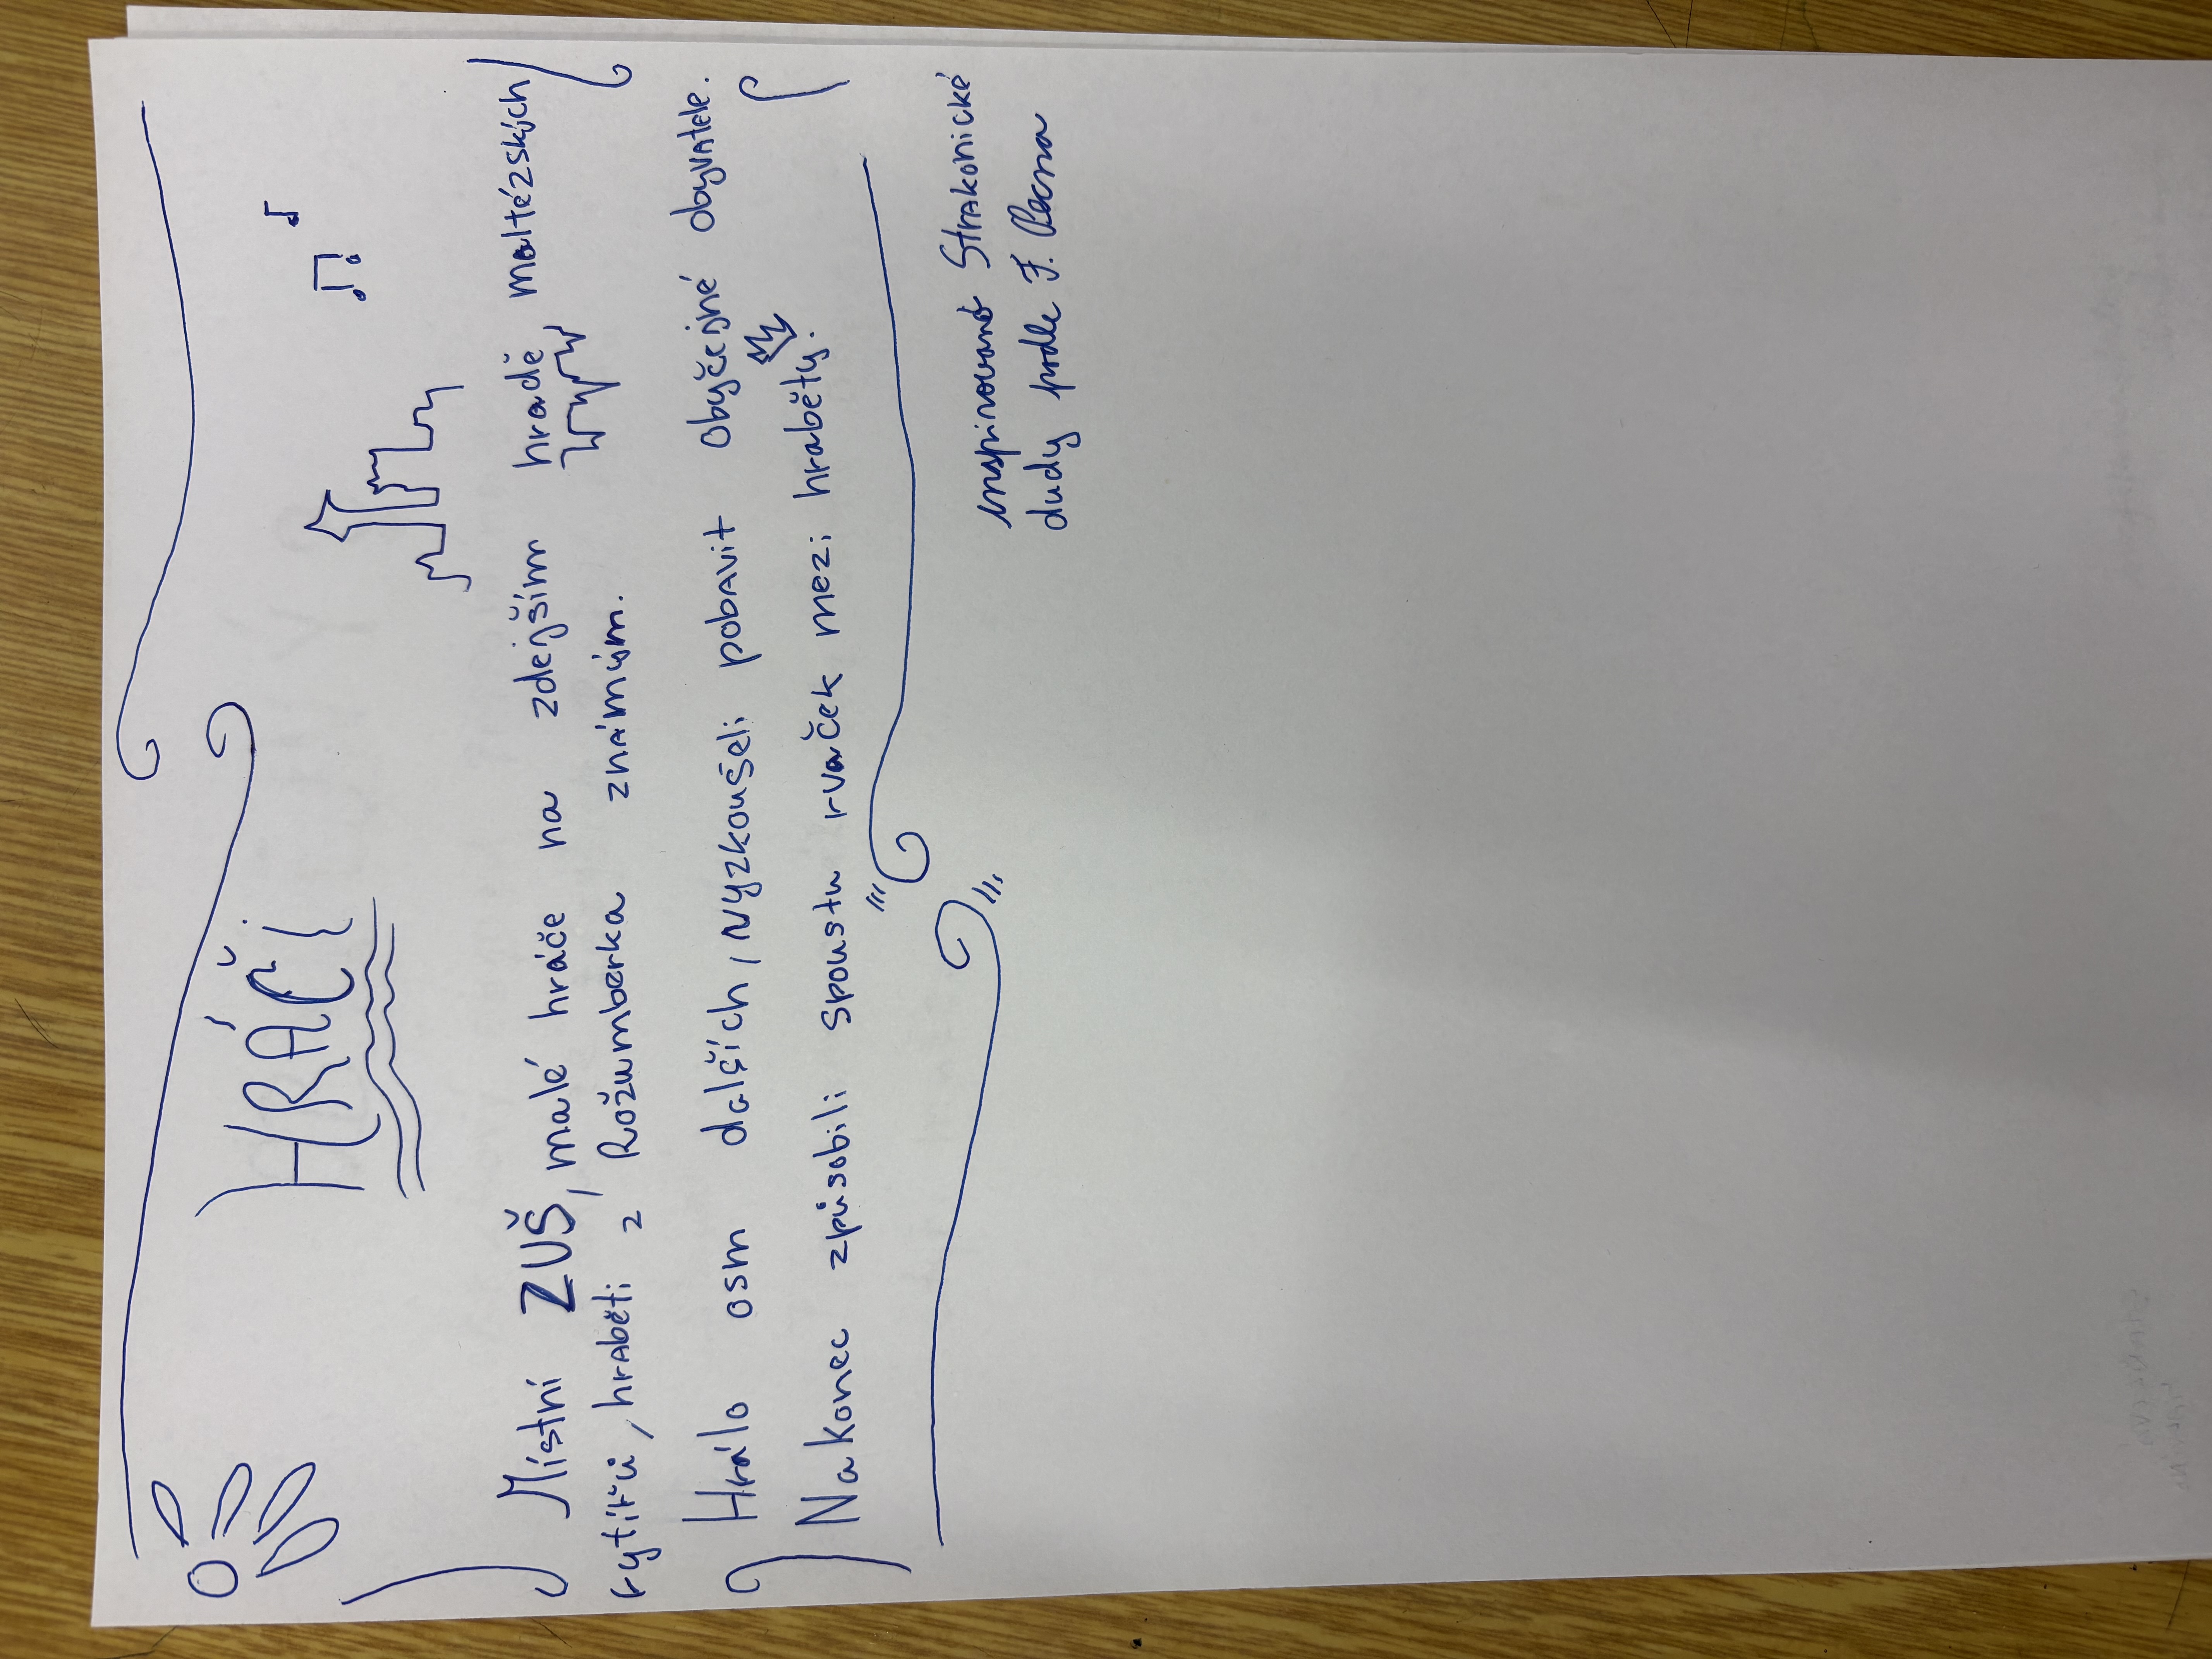 HRÁČI
Místní ZUŠ, malé hráče na zdejším hradě, maltézských
rytířů, hraběti z Rožumberka známým.
Hrálo osm dalších, vyzkoušeli pobavit obyčejné obyvatele.
Nakonec způsobili spoustu rvaček mezi hraběty.
inspirované Strakonické
dudy podle J.